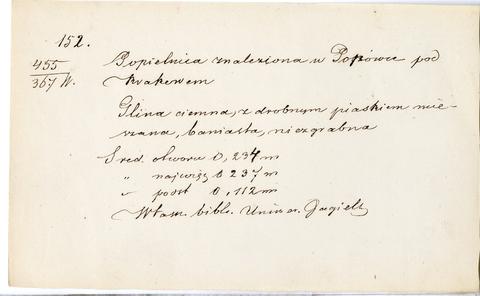 152.
455
367 W.
Popielnica znaleziona w pod
Krakowem
Glina ciemna, z drobnym piaskiem mie-
szana, baniasta, niezgrabna
Sred. otworu 0,234 m
" najwięk 0 237 m
" podst 0,112 m
Własn. bibl. Uniw. Jagiell